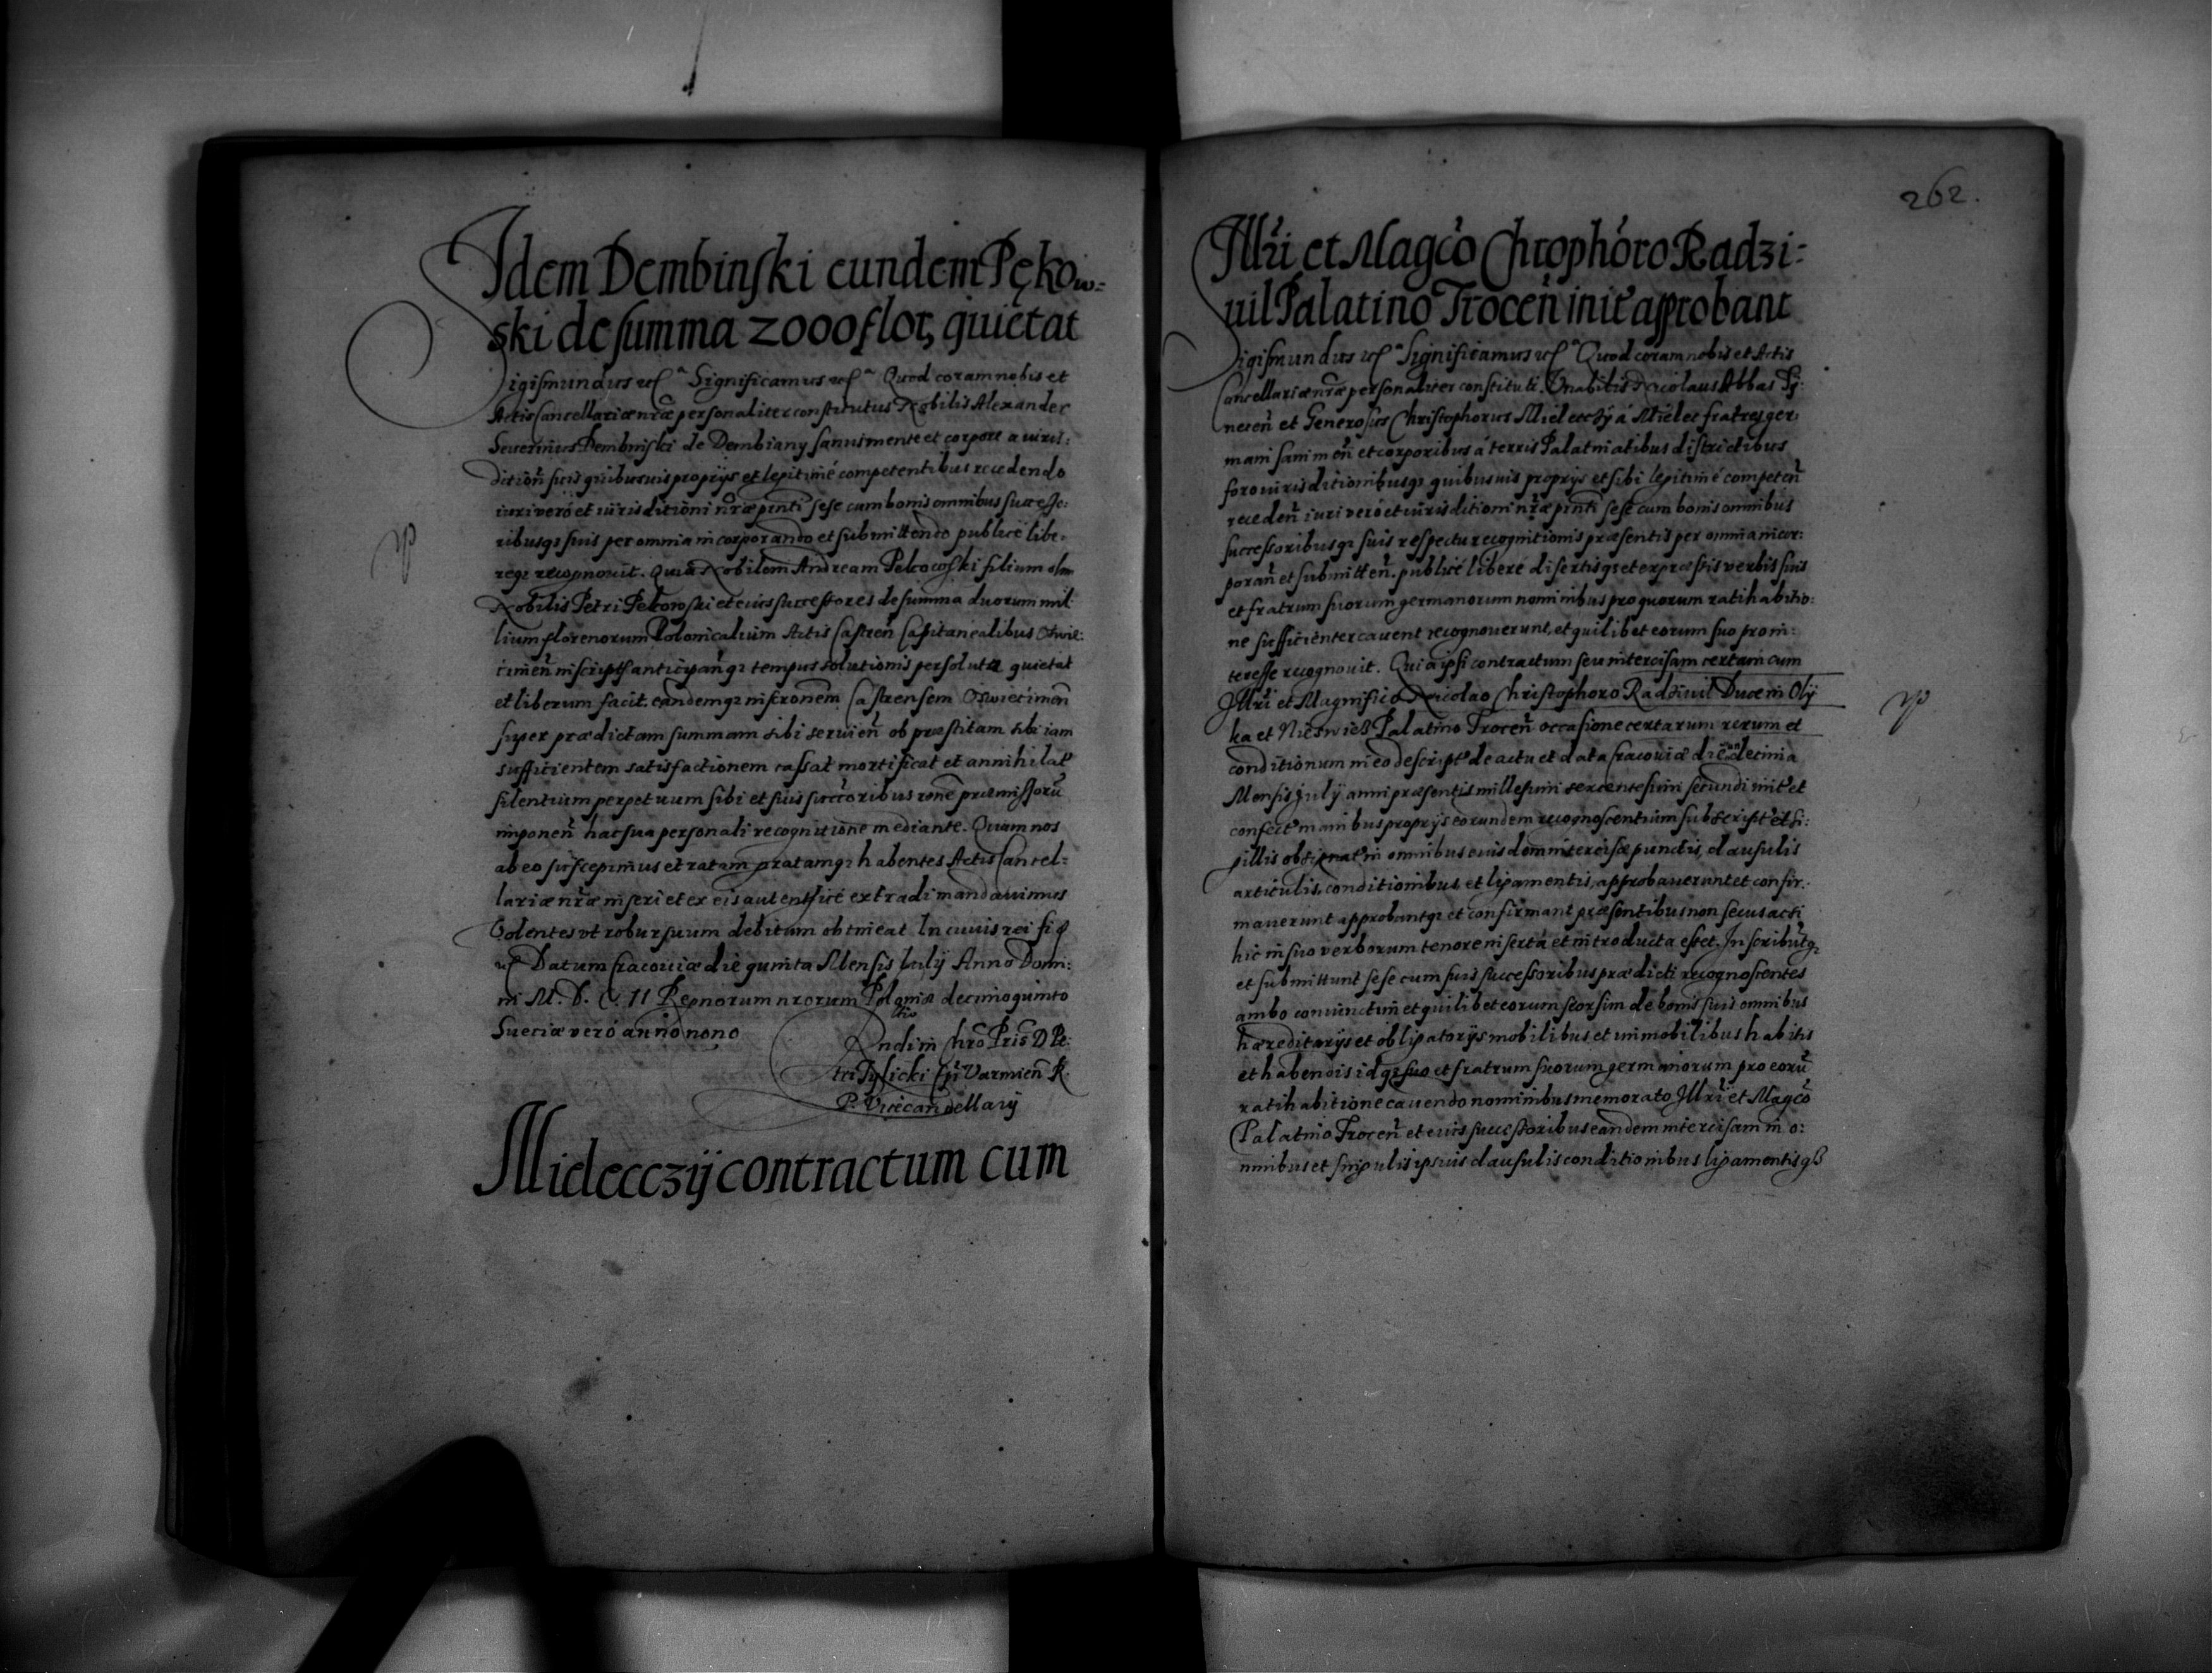 Idem Dembinski eundem Pękow=
ski de summa 2000 flor, quietat
Sigismundus etc Significamus etc Quod coram nobis et
Actis Cancellariæ nr̃æ personaliter constitutus Nobilis Alexander
Seuerinus Dembinski de Dembiany sanus mente et corpore a iuris=
dictioñ suis quibusuis proprijs et legitimé competentibus recedendo
iuri veró et iurisditioni nr̃æ pñti sese cum bonis omnibus successo:
ribusq; suis per omnia incorporando et submittendo publicé libe:
req; recognouit. Quia Nobilem Andream Pekowski filium olim
Nobilis Petri Pekowski et eius successores de summa duorum mil
lium florenorum Polonicalium Actis Castreñ Capitanealibus Oswie:
cimeñ inscript anticipañq; tempus solutionis persoluta quietat
et liberum facit. eandemq; inscronem Castrensem Oswiecimeñ
super prædictam summam sibi seruieñ ob præstitam sibi iam
sufficientem satisfactionem cassat mortificat et annihilat
silentium perpetuum sibi et suis succoribus rone præmissorũ
imponeñ hac sua personali recognitione mediante. Quam nos
ab eo suscepimus et ratam gratamq; habentes Actis Cancel=
lariæ nr̃æ inseri et ex eis autenticé extradi mandauimus
Volentes vt robur suum debitum obtineat In cuius rei fig
Datum Cracouiæ die quinta Mensis Iulij Anno Domi:
ni M. D. C. II Regnorum nrorum Poloniæ decimoquinto
Sueciæ veró anno nono
Rndim Chro Pris D Pe:
tri Tylicki Epi Varmieñ R.
P. Vicecancellarij
Mielecczij contractum cum
262.
Illr̃i et Magco Chrophoro Radzi=
uil Palatino Troceñ init aprobant
Sigismundus etc Significamus etc Quod coram nobis et Actis
Cancellariæ nr̃æ personaliter constituti. Vnabilis Nicolaus Abbas Ty:
neceñ et Generosus Christophorus Mielecczÿ á Mielec fratres ger:
mani sani meñ et corporibus á terris Palatinatibus districtibus
foro iurisditionibusq; quibusuis proprijs et sibi legitimé competeñ
recedeñ iuri veró et iurisditioni nr̃æ pñti sese cum bonis omnibus
successoribusq; suis respectu recognitionis præsentis per omnia incor:
porañ et submitteñ. publicé liberé disertisq; et expræssis verbis suis
et fratrum suorum germanorum nominibus pro quorum ratihabitio:
ne sufficienter cauent recognouerunt, et quilibet eorum suo pro in:
teresse recognouit. Quia ipsi contractum seu intercisam certam cum
Illr̃i et Magnifico Nicolao Christophoro Radziuil Duce in Oly
ka et Nieswiesz Palatino Troceñ occasione certarum rerum et
conditionum in eo descript de actu et data Cracouiæ die decima
Mensis Julij anni præsentis millesimi sexcentesimi secundi init et
confect manibus proprijs eorundem recognoscentium subscript et si:
gillis obsignat in omnibus eiusdem intercisæ punctis, clausulis
articulis, conditionibus et ligamentis, approbauerunt et confir:
mauerunt approbantq; et confirmant præsentibus non secus acti
hic in suo verborum tenore inserta et introducta esset. Inscributq;
et submittunt sese cum suis successoribus prædicti recognoscentes
ambo coniunctim et quilibet eorum seorsim de bonis suis omnibus
hæreditarijs et obligatorijs mobilibus et immobilibus habitis
et habendis idq; suo et fratrum suorum germanorum pro eorũ
ratihabitione cauendo nominibus memorato Illr̃i et Magco
Palatino Troceñ et eius successoribus eandem intercisam in o:
mnibus et singulis ipsius clausulis conditionibus ligamentisq